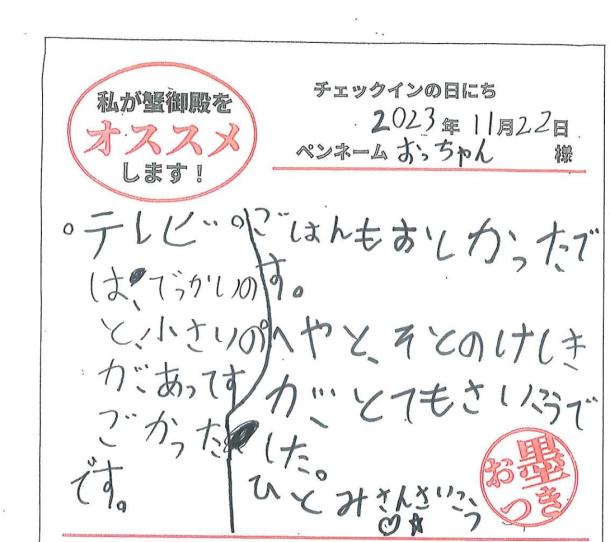 私が蟹御殿を
オススメ
します！
チェックインの日にち
2023年11月22日
ペンネーム おっちゃん 様
。テレビ
は、でっかいの
と、小さいの
があってす
ごかった
です。
。ごはんもおしかったで
す。
。へやと、そとのけしき
が、とてもさいこうで
した。
ひとみさんさいこう
♡☆
お墨
つき